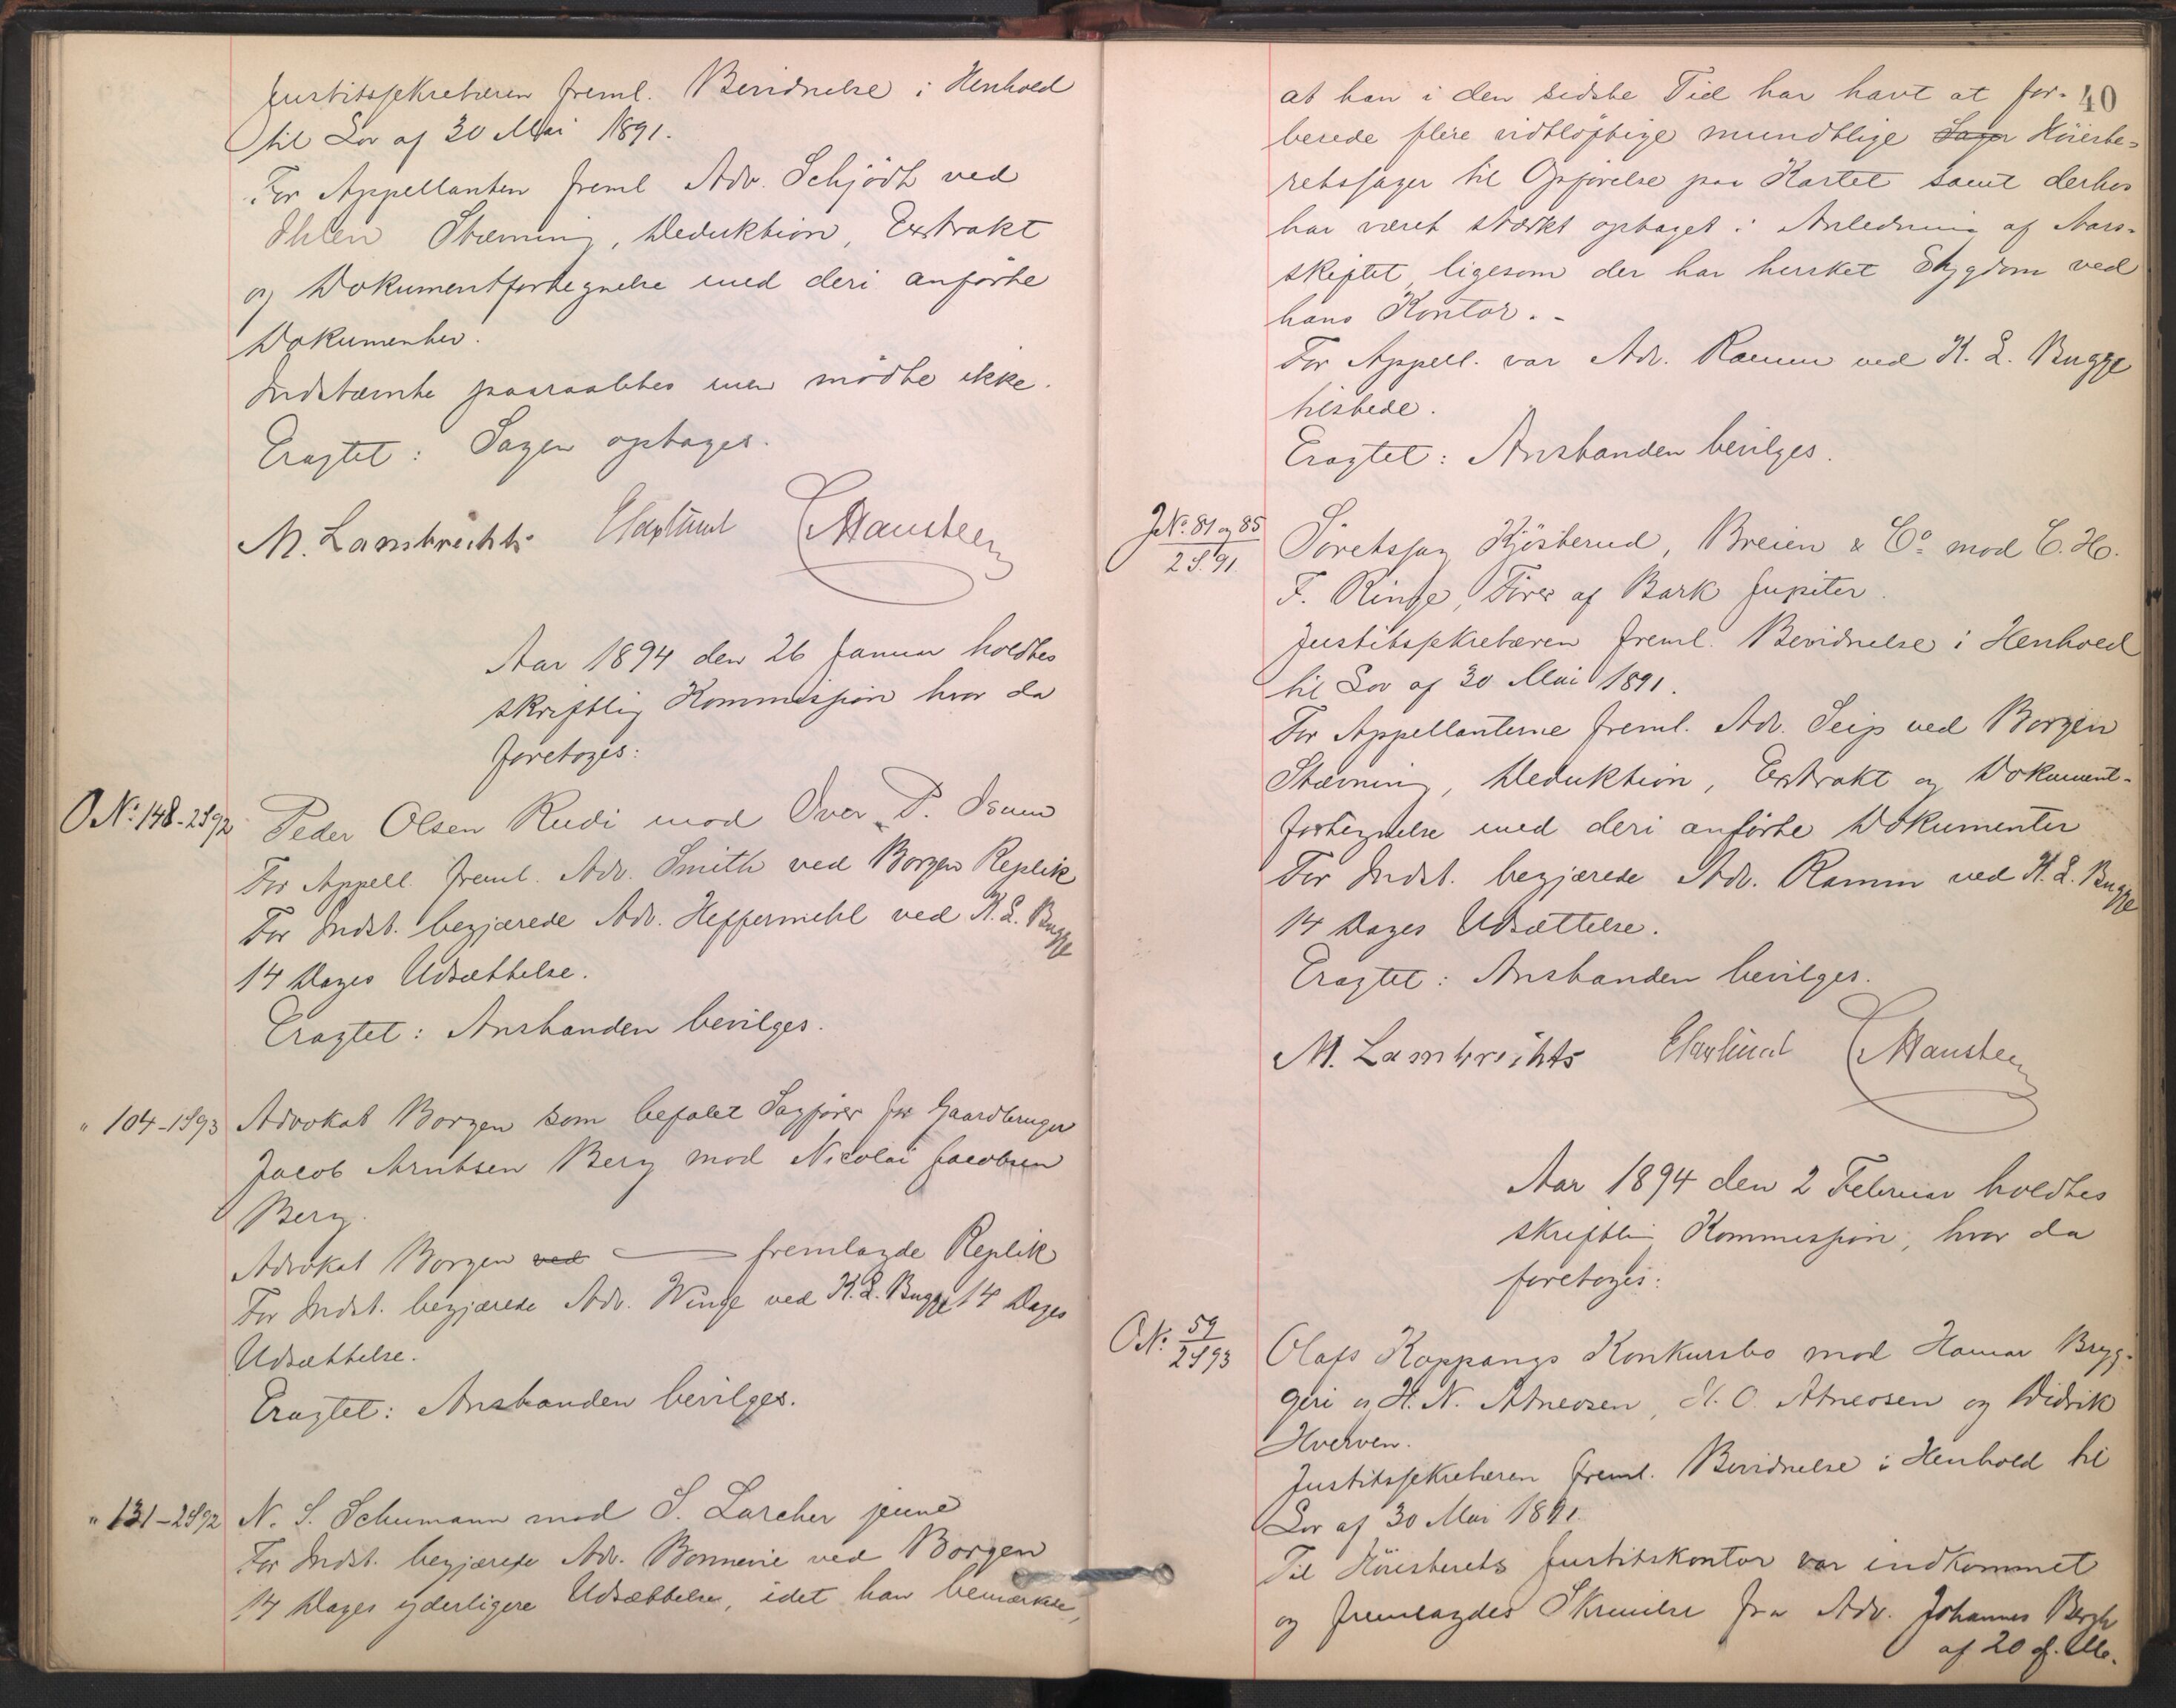 Justitssekretæren freml. Bevidnelse i Henhold
til Lov af 30 Mai 1891.
For Appellanten freml Adv. Schjödt ved
Ihlen Stævning, Deduktion, Extrakt
og Dokumentfortegnelse med deri anförte
Dokumenter.
Indstævnte paaraabtes men mödte ikke.
Eragtet: Sagen optages.
M. Lambrechts Haxlund Hansteen
Aar 1894 den 26 Januar holdtes
skriftlig Kommission hvor da
foretoges:
O No. 148-2S92
Peder Olsen Rudi mod Iver P. Isum
For Appell. freml. Adv. Smith ved Borgen Replik
For Indst. begjærede Adv. Heffermehl ved K. L. Bugge
14 Dages Udsættelse.
Eragtet: Anstanden bevilges.
" 104-1S93
Advokat Borgen som befalet Sagförer for Gaardbruger
Jacob Arntsen Berg mod Nicolai Jacobsen
Berg.
Advokat Borgen ved — fremlagde Replik
For Indst. begjærede Adv. Winge ved K. L. Bugge 14 Dages
Udsættelse.
Eragtet: Anstanden bevilges.
" 131-2S92
N. S. Schumann mod S. Larcher jeune
For Indst. begjærede Adv. Bonnevie ved Borgen
14 Dages yderligere Udsættelse, idet han bemærkede,
40
at han i den sidste Tid har havt at for-
berede flere vidtlöftige mundtlige Sager Höieste-
retssager til Opförelse paa Kartet samt derhos
har været stærkt optaget i Anledning af Aars-
skiftet, ligesom der har hersket Sygdom ved
hans Kontor. -
For Appell. var Adv. Ramm ved K. L. Bugge
tilstede.
Eragtet: Anstanden bevilges.
J No. 81 og 85
2S.91.
Söretssag Kjösterud, Breien & Co. mod C. H.
F. Ringe, Förer af Bark Jupiter.
Justitssekretæren freml. Bevidnelse i Henhold
til Lov af 30 Mai 1891.
For Appellanterne freml. Adv. Seip ved Borgen
Stævning, Deduktion, Extrakt og Dokument-
fortegnelse med deri anförte Dokumenter
For Indst. begjærede Adv. Ramm ved K. L. Bugge
14 Dages Udsættelse.
Eragtet: Anstanden bevilges.
M. Lambrechts Haxlund Hansteen
Aar 1894 den 2 Februar holdtes
skriftlig Kommission, hvor da
foretoges:
O No. 59
2S93
Olafs Koppangs Konkursbo mod Hamar Bryg-
geri og H. N. Atneosen, H. O. Atneosen og Didrik
Hverven.
Justitssekretæren freml. Bevidnelse i Henhold til
Lov af 30 Mai 1891
Til Höiesterets Justitskontor var indkommet
og fremlagdes Skrivelse fra Adv. Johannes Bergh
af 20 f. M.